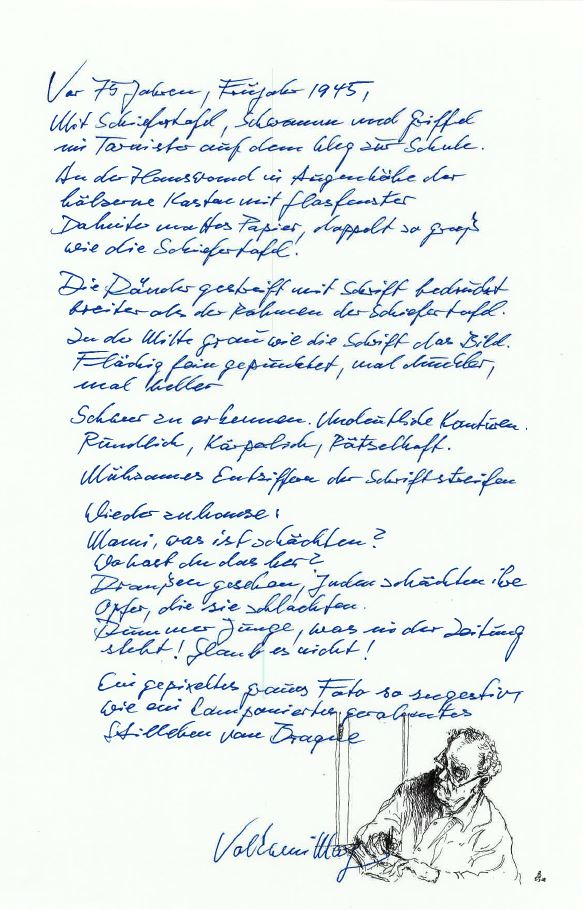 Vor 75 Jahren, Frühjahr 1945,
Mit Schiefertafel, Schwamm und Griffel
im Tornister auf dem Weg zur Schule.
An der Hauswand in Augenhöhe der
hölzerne Kasten mit Glasfenster
Dahinter mattes Papier, doppelt so groß
wie die Schiefertafel.
Die Ränder gestreift mit Schrift bedruckt
breiter als der Rahmen der Schiefertafel.
In der Mitte grau wie die Schrift das Bild.
Flächig fein gepunktet, mal dunkler,
mal heller
Schwer zu erkennen. Undeutliche Konturen.
Rundlich, Körperlich, Rätselhaft.
Mühsames Entziffern der Schriftstreifen
Wieder zuhause:
Mami, was ist schächten?
Wo hast du das her?
Draußen gesehen, Juden schächten ihre
Opfer, die sie schlachten.
Dummer Junge, was in der Zeitung
steht! Glaub es nicht!
Ein gepixeltes graues Foto so suggestiv
wie ein komponiertes gerahmtes
Stilleben von Braque